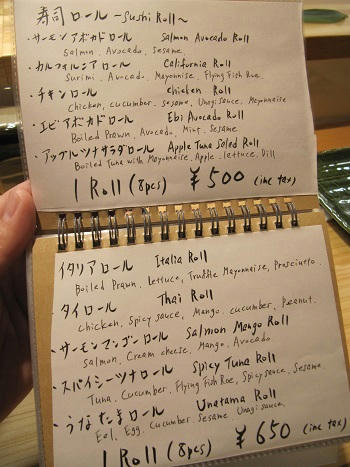 寿司ロール ~Sushi Roll~
・サーモンアボカドロール Salmon Avocado Roll
Salmon, Avocado, Sesame
・カルフォルニアロール California Roll
Surimi, Avocado, Mayonnise, Flying Fish Roe,
・チキンロール Chicken Roll
Chicken, cucumber, sesame, Unagi sauce, Mayonnaise
・エビアボカドロール Ebi Avocado Roll
Boiled Prawn, Avocado, Mint, Sesame
・アップルツナサラダロール Apple Tuna Salad Roll
Boiled Tuna with Mayonnaise, Apple, lettuce, Dill
1 Roll (8pcs) ¥500 (inc tax)
イタリアロール Italia Roll
Boiled Prawn, Lettuce, Truffle Mayonnaise, Prosciutto
・タイロール Thai Roll
Chicken, Spicy sauce, Mango, cucumber, Peanut
・サーモンマンゴーロール Salmon Mango Roll
Salmon, Cream cheese, Mango, Avocado
・スパイシーツナロール Spicy Tuna Roll
Tuna, Cucumber, Flying Fish Roe, Spicy sauce, Sesame
・うなたまロール Unatama Roll
Eel, Egg, Cucumber, Sesame Unagi sauce
1 Roll (8pcs) ¥650 (inc tax)